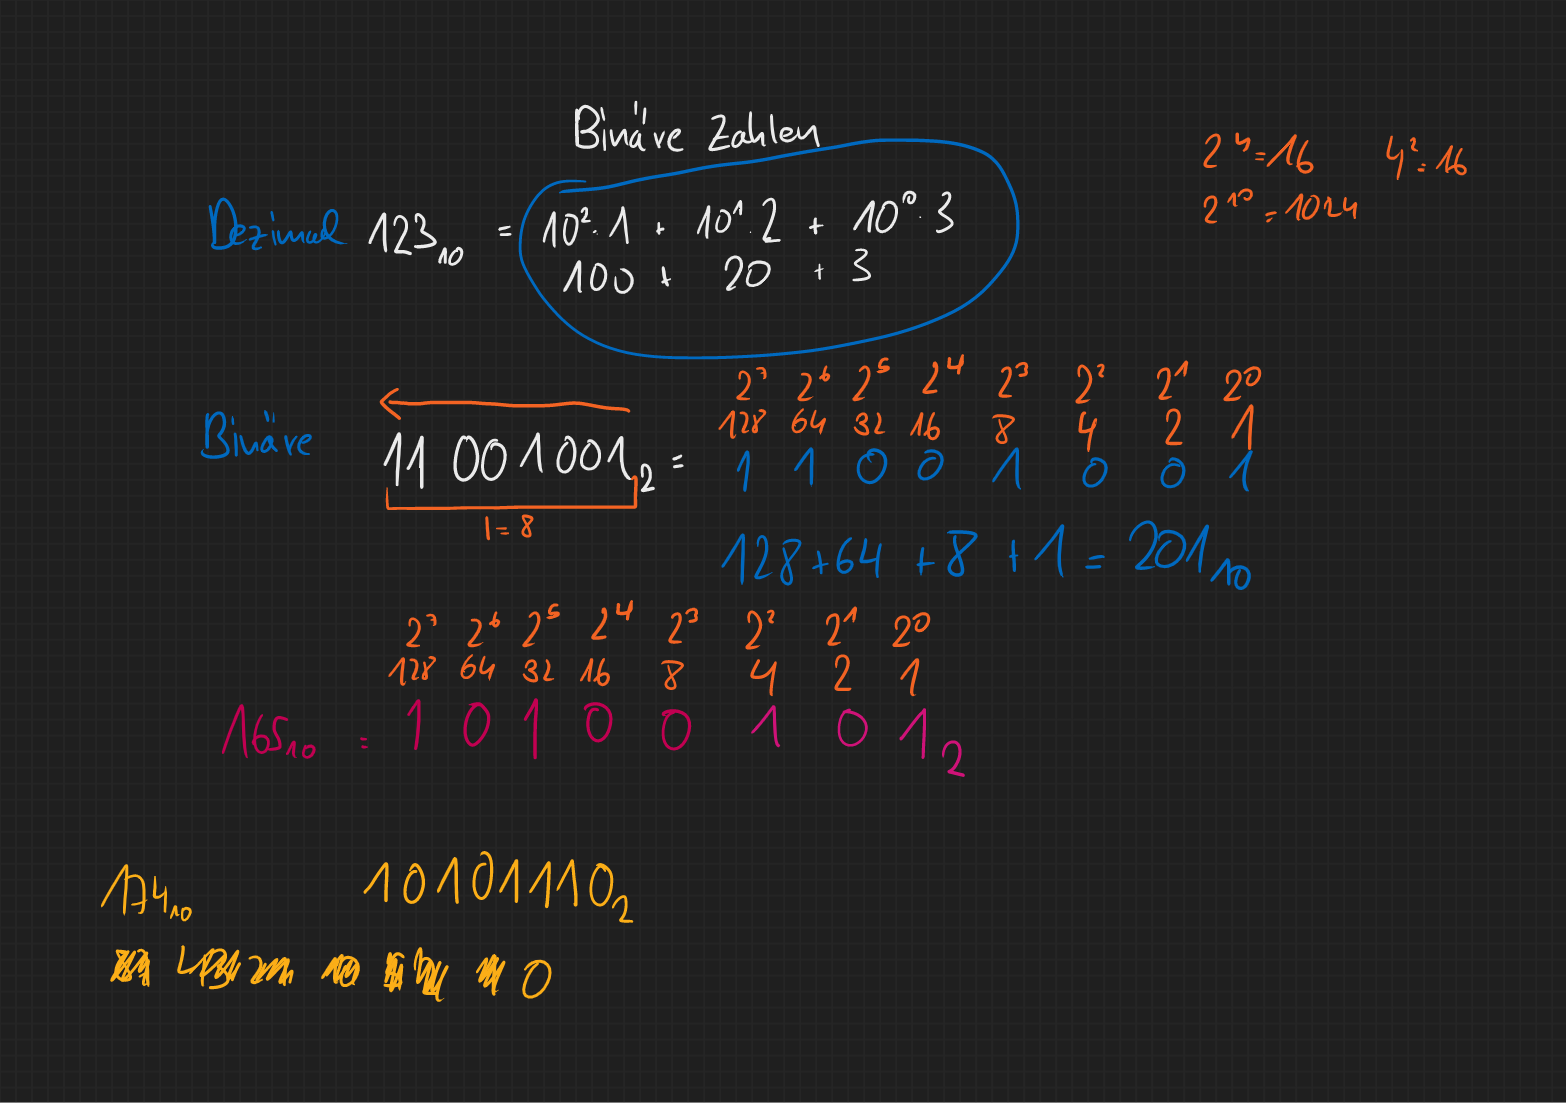 Binäre Zahlen
2⁴=16 4²=16
2¹⁰=1024
Dezimal 123₁₀ = 10²·1 + 10¹·2 + 10⁰·3
100 + 20 + 3
2⁷ 2⁶ 2⁵ 2⁴ 2³ 2² 2¹ 2⁰
128 64 32 16 8 4 2 1
Binäre 11001001₂ = 1 1 0 0 1 0 0 1
l=8
128+64+8+1=201₁₀
2⁷ 2⁶ 2⁵ 2⁴ 2³ 2² 2¹ 2⁰
128 64 32 16 8 4 2 1
165₁₀ = 1 0 1 0 0 1 0 1₂
174₁₀ 10101110₂
0